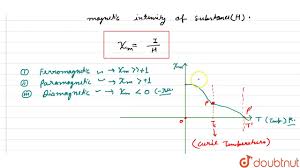 magnetic intensity of substance (H).
χm = I / H
① Ferromagnetic → χm >> +1
② Paramagnetic → χm > +1
③ Diamagnetic → χm < 0 (-ve)
χm
P
P'
O
T (temp) K.
(Curie Temperature)
doubtnut